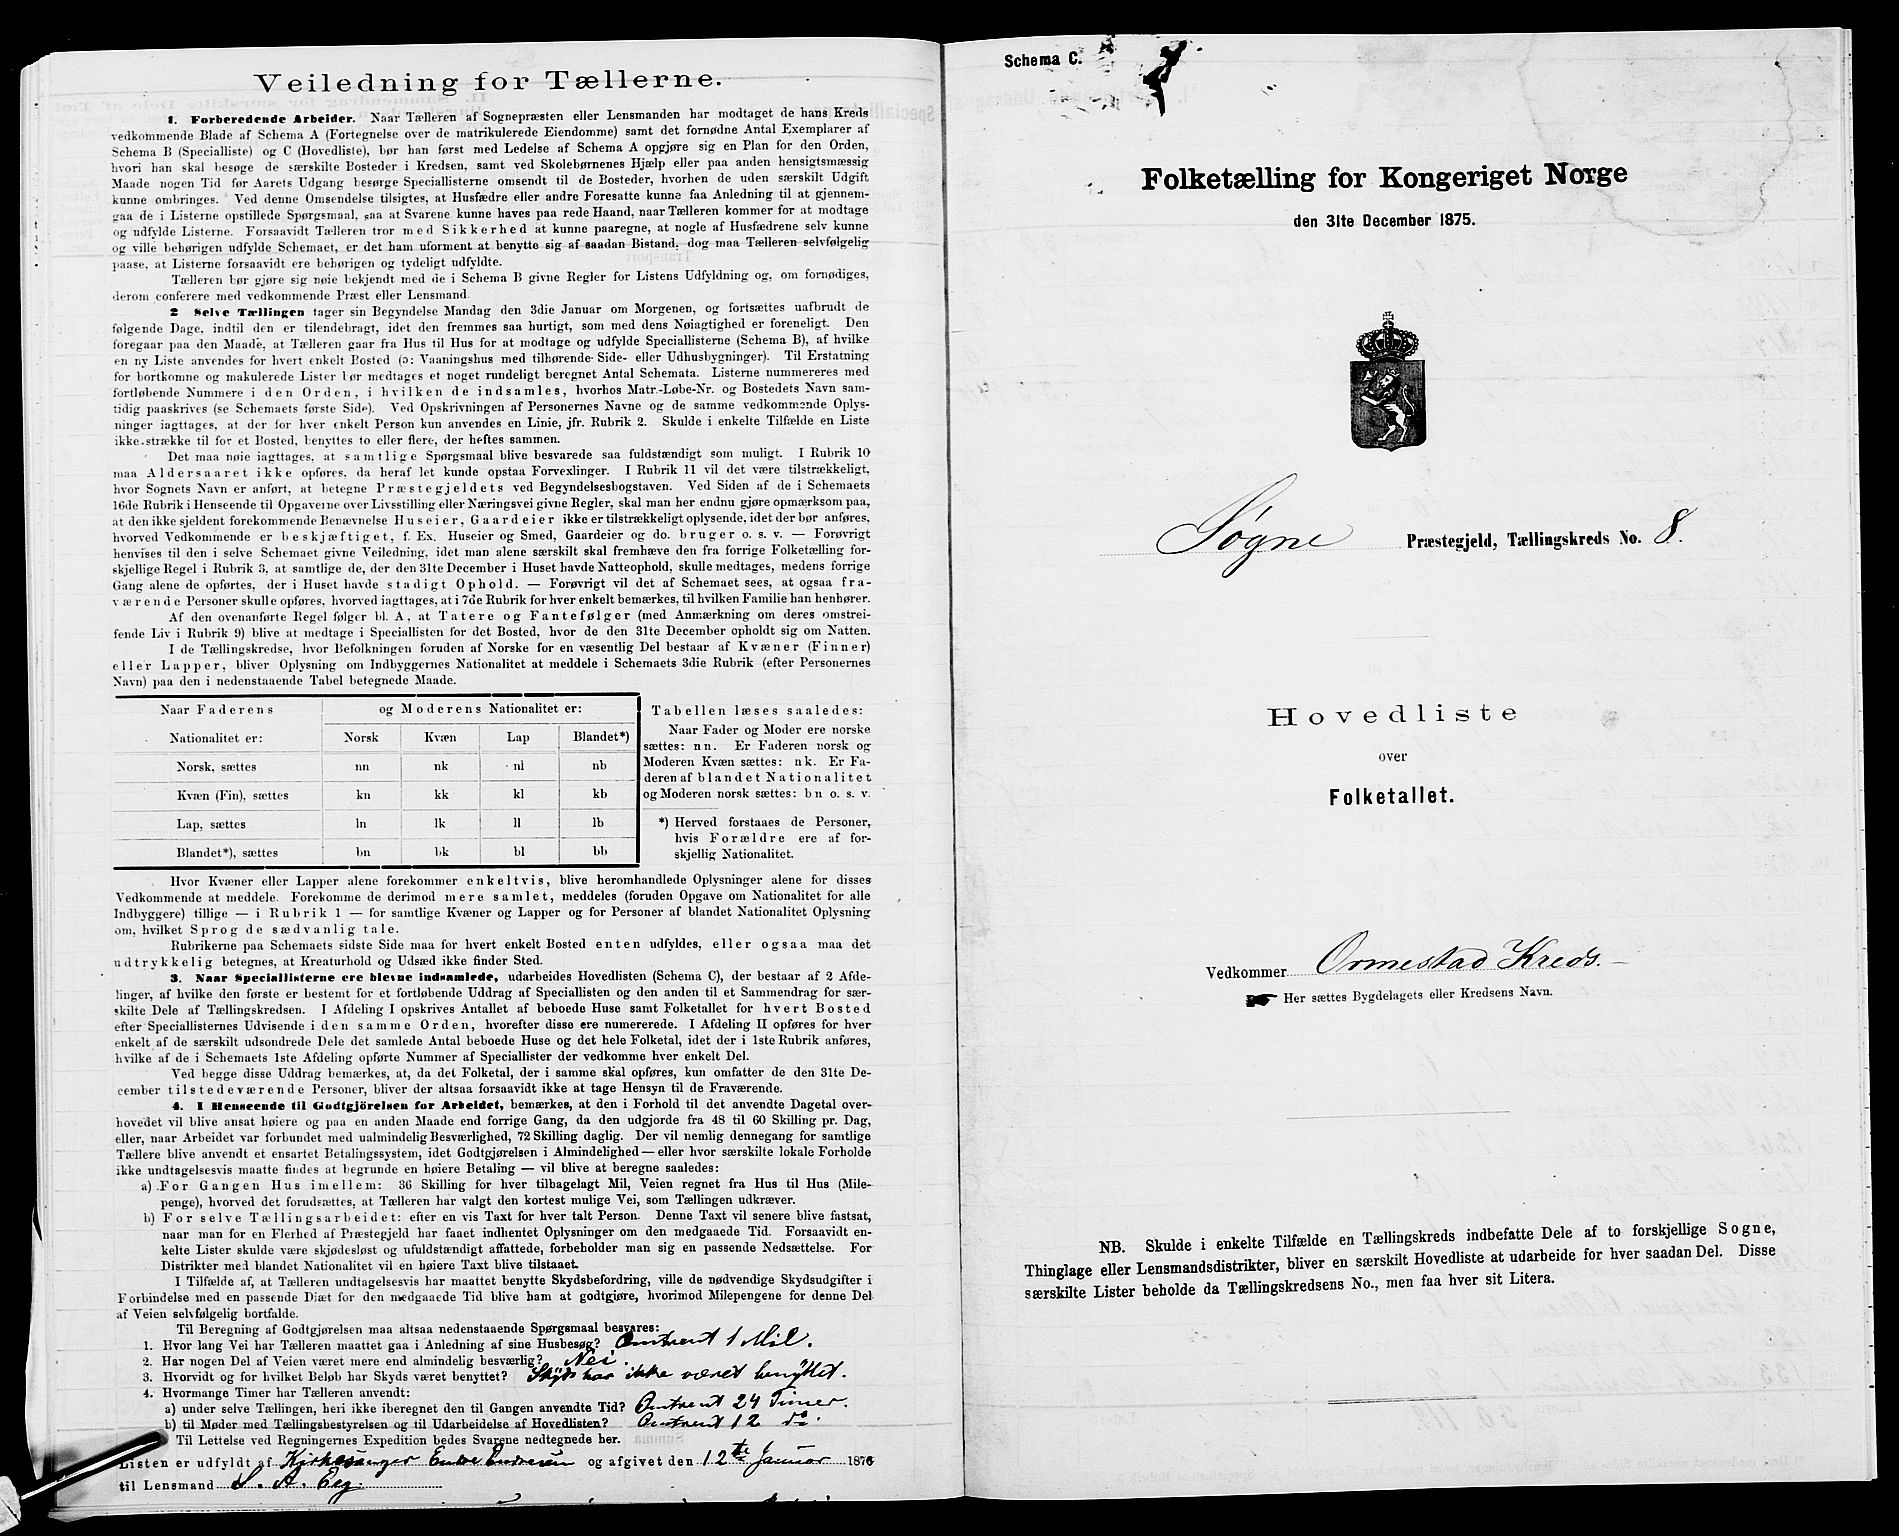 Veiledning for Tællerne.
1. Forberedende Arbeider. Naar Tælleren af Sognepræsten eller Lensmanden har modtaget de hans Kreds
vedkommende Blade af Schema A (Fortegnelse over de matrikulerede Eiendomme) samt det fornødne Antal Exemplarer af
Schema B (Specialliste) og C (Hovedliste), bør han først med Ledelse af Schema A opgjøre sig en Plan for den Orden,
hvori han skal besøge de særskilte Bosteder i Kredsen, samt ved Skolebørnenes Hjælp eller paa anden hensigtsmæssig
Maade nogen Tid før Aarets Udgang besørge Speciallisterne omsendt til de Bosteder, hvorhen de uden særskilt Udgift
kunne ombringes. Ved denne Omsendelse tilsigtes, at Husfædre eller andre Foresatte kunne faa Anledning til at gjennem-
gaa de i Listerne opstillede Spørgsmaal, saa at Svarene kunne haves paa rede Haand, naar Tælleren kommer for at modtage
og udfylde Listerne. Forsaavidt Tælleren tror med Sikkerhed at kunne paaregne, at nogle af Husfædrene selv kunne
og ville behørigen udfylde Schemaet, er det ham uforment at benytte sig af saadan Bistand, dog maa Tælleren selvfølgelig
paase, at Listerne forsaavidt ere behørigen og tydeligt udfyldte.
Tælleren bør gjøre sig nøie bekjendt med de i Schema B givne Regler for Listens Udfyldning og, om fornødiges,
derom conferere med vedkommende Præst eller Lensmand.
2 Selve Tællingen tager sin Begyndelse Mandag den 3die Januar om Morgenen, og fortsættes uafbrudt de
følgende Dage, indtil den er tilendebragt, idet den fremmes saa hurtigt, som med dens Nøiagtighed er foreneligt. Den
foregaar paa den Maade, at Tælleren gaar fra Hus til Hus for at modtage og udfylde Speciallisterne (Schema B), af hvilke
en ny Liste anvendes for hvert enkelt Bosted (ɔ: Vaaningshus med tilhørende Side- eller Udhusbygninger). Til Erstatning
for bortkomne og makulerede Lister bør medtages et noget rundeligt beregnet Antal Schemata. Listerne nummereres med
fortløbende Nummere i den Orden, i hvilken de indsamles, hvorhos Matr.-Løbe-Nr. og Bostedets Navn sam-
tidig paaskrives (se Schemaets første Side). Ved Opskrivningen af Personernes Navne og de samme vedkommende Oplys-
ninger iagttages, at der for hver enkelt Person kun anvendes en Linie, jfr. Rubrik 2. Skulde i enkelte Tilfælde en Liste
ikke strække til for et Bosted, benyttes to eller flere, der heftes sammen.
Det maa nøie iagttages, at samtlige Spørgsmaal blive besvarede saa fuldstændigt som muligt. I Rubrik 10
maa Aldersaaret ikke opføres, da heraf let kunde opstaa Forvexlinger. I Rubrik 11 vil det være tilstrækkeligt,
hvor Sognets Navn er anført, at betegne Præstegjeldets ved Begyndelsesbogstaven. Ved Siden af de i Schemaets
16de Rubrik i Henseende til Opgaverne over Livsstilling eller Næringsvei givne Regler, skal man her endnu gjøre opmærksom paa,
at den ikke sjeldent forekommende Benævnelse Huseier, Gaardeier ikke er tilstrækkeligt oplysende, idet der bør anføres,
hvorved Vedkommende er beskjæftiget, f. Ex. Huseier og Smed, Gaardeier og do. bruger o. s. v. — Forøvrigt
henvises til den i selve Schemaet givne Veiledning, idet man alene særskilt skal fremhæve den fra forrige Folketælling for-
skjellige Regel i Rubrik 3, at samtlige de, der den 31te December i Huset havde Natteophold, skulle medtages, medens forrige
Gang alene de opførtes, der i Huset havde stadigt Ophold. — Forøvrigt vil det af Schemaet sees, at ogsaa fra-
værende Personer skulle opføres, hvorved iagttages, at i 7de Rubrik for hver enkelt bemærkes, til hvilken Familie han henhører.
Af den ovenanførte Regel følger bl. A, at Tatere og Fantefølger (med Anmærkning om deres omstrei-
fende Liv i Rubrik 9) blive at medtage i Speciallisten for det Bosted, hvor de den 31te December opholdt sig om Natten.
I de Tællingskredse, hvor Befolkningen foruden af Norske for en væsentlig Del bestaar af Kvæner (Finner)
eller Lapper, bliver Oplysning om Indbyggernes Nationalitet at meddele i Schemaets 3die Rubrik (efter Personernes
Navn) paa den i nedenstaaende Tabel betegnede Maade.
Naar Faderens og Moderens Nationalitet er:
Nationalitet er: Norsk Kvæn Lap Blandet*)
Norsk, sættes nn nk nl nb
Kvæn (Fin), sættes kn kk kl kb
Lap, sættes ln lk ll lb
Blandet*), sættes bn bk bl bb
Tabellen læses saaledes:
Naar Fader og Moder ere norske
sættes: nn. Er Faderen norsk og
Moderen Kvæn sættes: nk. Er Fa-
deren af blandet Nationalitet
og Moderen norsk sættes: bn o. s. v.
*) Herved forstaaes de Personer,
hvis Forældre ere af for-
skjellig Nationalitet.
Hvor Kvæner eller Lapper alene forekommer enkeltvis, blive heromhandlede Oplysninger alene for disses
Vedkommende at meddele. Forekomme de derimod mere samlet, meddeles (foruden Opgave om Nationalitet for alle
Indbyggere) tillige — i Rubrik 1 — for samtlige Kvæner og Lapper og for Personer af blandet Nationalitet Oplysning
om, hvilket Sprog de sædvanlig tale.
Rubrikerne paa Schemaets sidste Side maa for hvert enkelt Bosted enten udfyldes, eller ogsaa maa det
udtrykkelig betegnes, at Kreaturhold og Udsæd ikke finder Sted.
3. Naar Speciallisterne ere blevne indsamlede, udarbeides Hovedlisten (Schema C), der bestaar af 2 Afde-
linger, af hvilke den første er bestemt for et fortløbende Uddrag af Speciallisten og den anden til et Sammendrag for sær-
skilte Dele af Tællingskredsen. I Afdeling I opskrives Antallet af beboede Huse samt Folketallet for hvert Bosted
efter Speciallisternes Udvisende i den samme Orden, hvorefter disse ere numererede. I Afdeling II opføres for hver
enkelt af de særskilt udsondrede Dele det samlede Antal beboede Huse og det hele Folketal, idet der i 1ste Rubrik anføres,
hvilke af de i Schemaets 1ste Afdeling opførte Nummer af Speciallister der vedkomme hver enkelt Del.
Ved begge disse Uddrag bemærkes, at, da det Folketal, der i samme skal opføres, kun omfatter de den 31te De-
cember tilstedeværende Personer, bliver der altsaa forsaavidt ikke at tage Hensyn til de Fraværende.
4. I Henseende til Godtgjörelsen for Arbeidet, bemærkes, at den i Forhold til det anvendte Dagetal over-
hovedet vil blive ansat høiere og paa en anden Maade end forrige Gang, da den udgjorde fra 48 til 60 Skilling pr. Dag,
eller, naar Arbeidet var forbundet med ualmindelig Besværlighed, 72 Skilling daglig. Der vil nemlig dennegang for samtlige
Tællere blive anvendt et ensartet Betalingssystem, idet Godtgjørelsen i Almindelighed — eller hvor særskilte lokale Forholde
ikke undtagelsesvis maatte findes at begrunde en høiere Betaling — vil blive at beregne saaledes:
a) For Gangen Hus imellem: 36 Skilling for hver tilbagelagt Mil, Veien regnet fra Hus til Hus (Mile-
penge), hvorved det forudsættes, at Tælleren har valgt den kortest mulige Vei, som Tællingen udkræver.
b) For selve Tællingsarbeidet: efter en vis Taxt for hver talt Person. Denne Taxt vil senere blive fastsat,
naar man for en Flerhed af Præstegjeld har faaet indhentet Oplysninger om den medgaaede Tid. Forsaavidt en-
kelte Lister skulde være skjødesløst og ufuldstændigt affattede, forbeholder man sig en passende Nedsættelse. For
Distrikter med blandet Nationalitet vil en høiere Taxt blive tilstaaet.
I Tilfælde af, at Tælleren undtagelsesvis har maattet benytte Skydsbefordring, ville de nødvendige Skydsudgifter i
Forbindelse med en passende Diæt for den medgaaede Tid blive ham at godtgjøre, hvorimod Milepengene for denne Del
af Veien selvfølgelig bortfalde.
Til Beregning af Godtgjørelsen maa altsaa nedenstaaende Spørgsmaal besvares:
1. Hvor lang Vei har Tælleren maattet gaa i Anledning af sine Husbesøg? Omtrent 1 Mil.
2. Har nogen Del af Veien været mere end almindelig besværlig? Nei.
3. Hvorvidt og for hvilket Beløb har Skyds været benyttet? Skyds har ikke været benyttet.
4. Hvormange Timer har Tælleren anvendt:
a) under selve Tællingen, heri ikke iberegnet den til Gangen anvendte Tid? Omtrent 24 Timer.
b) til Møder med Tællingsbestyrelsen og til Udarbeidelse af Hovedlisten? Omtrent 12 do.
Til Lettelse ved Regningernes Expedition bedes Svarene nedtegnede her.
Listen er udfyldt af Kirkesanger Endre Endresen og afgivet den 12te Januar 1876
til Lensmand S. A. Eeg.
Schema C.
Folketælling for Kongeriget Norge
den 31te December 1875.
Søgne Præstegjeld, Tællingskreds No. 8.
Hovedliste
over
Folketallet.
Vedkommer Ormestad Kreds.
Her sættes Bygdelagets eller Kredsens Navn.
NB. Skulde i enkelte Tilfælde en Tællingskreds indbefatte Dele af to forskjellige Sogne,
Thinglage eller Lensmandsdistrikter, bliver en særskilt Hovedliste at udarbeide for hver saadan Del. Disse
særskilte Lister beholde da Tællingskredsens No., men faa hver sit Litera.